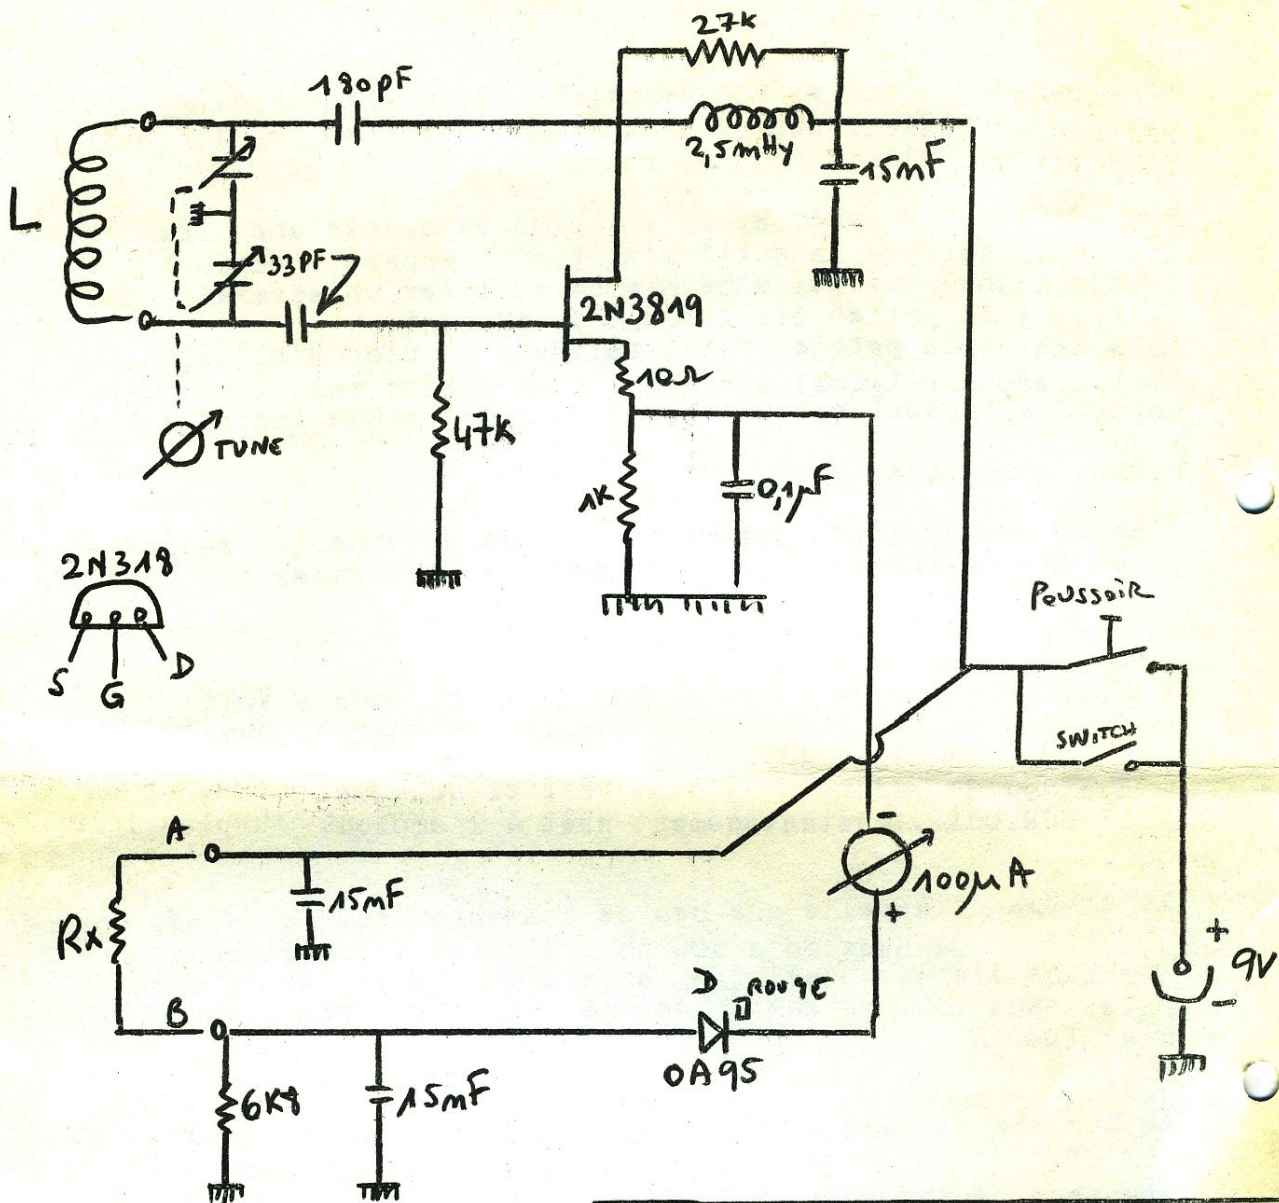 27K
180pF
2,5mHy
15nF
L
33PF
2N3819
10Ω
TUNE
47K
1K
0,1µF
2N318
S G D
POUSSOIR
SWITCH
A
-
100µA
+
15nF
Rx
+
9V
-
B
D ROUGE
OA95
6K8
15nF